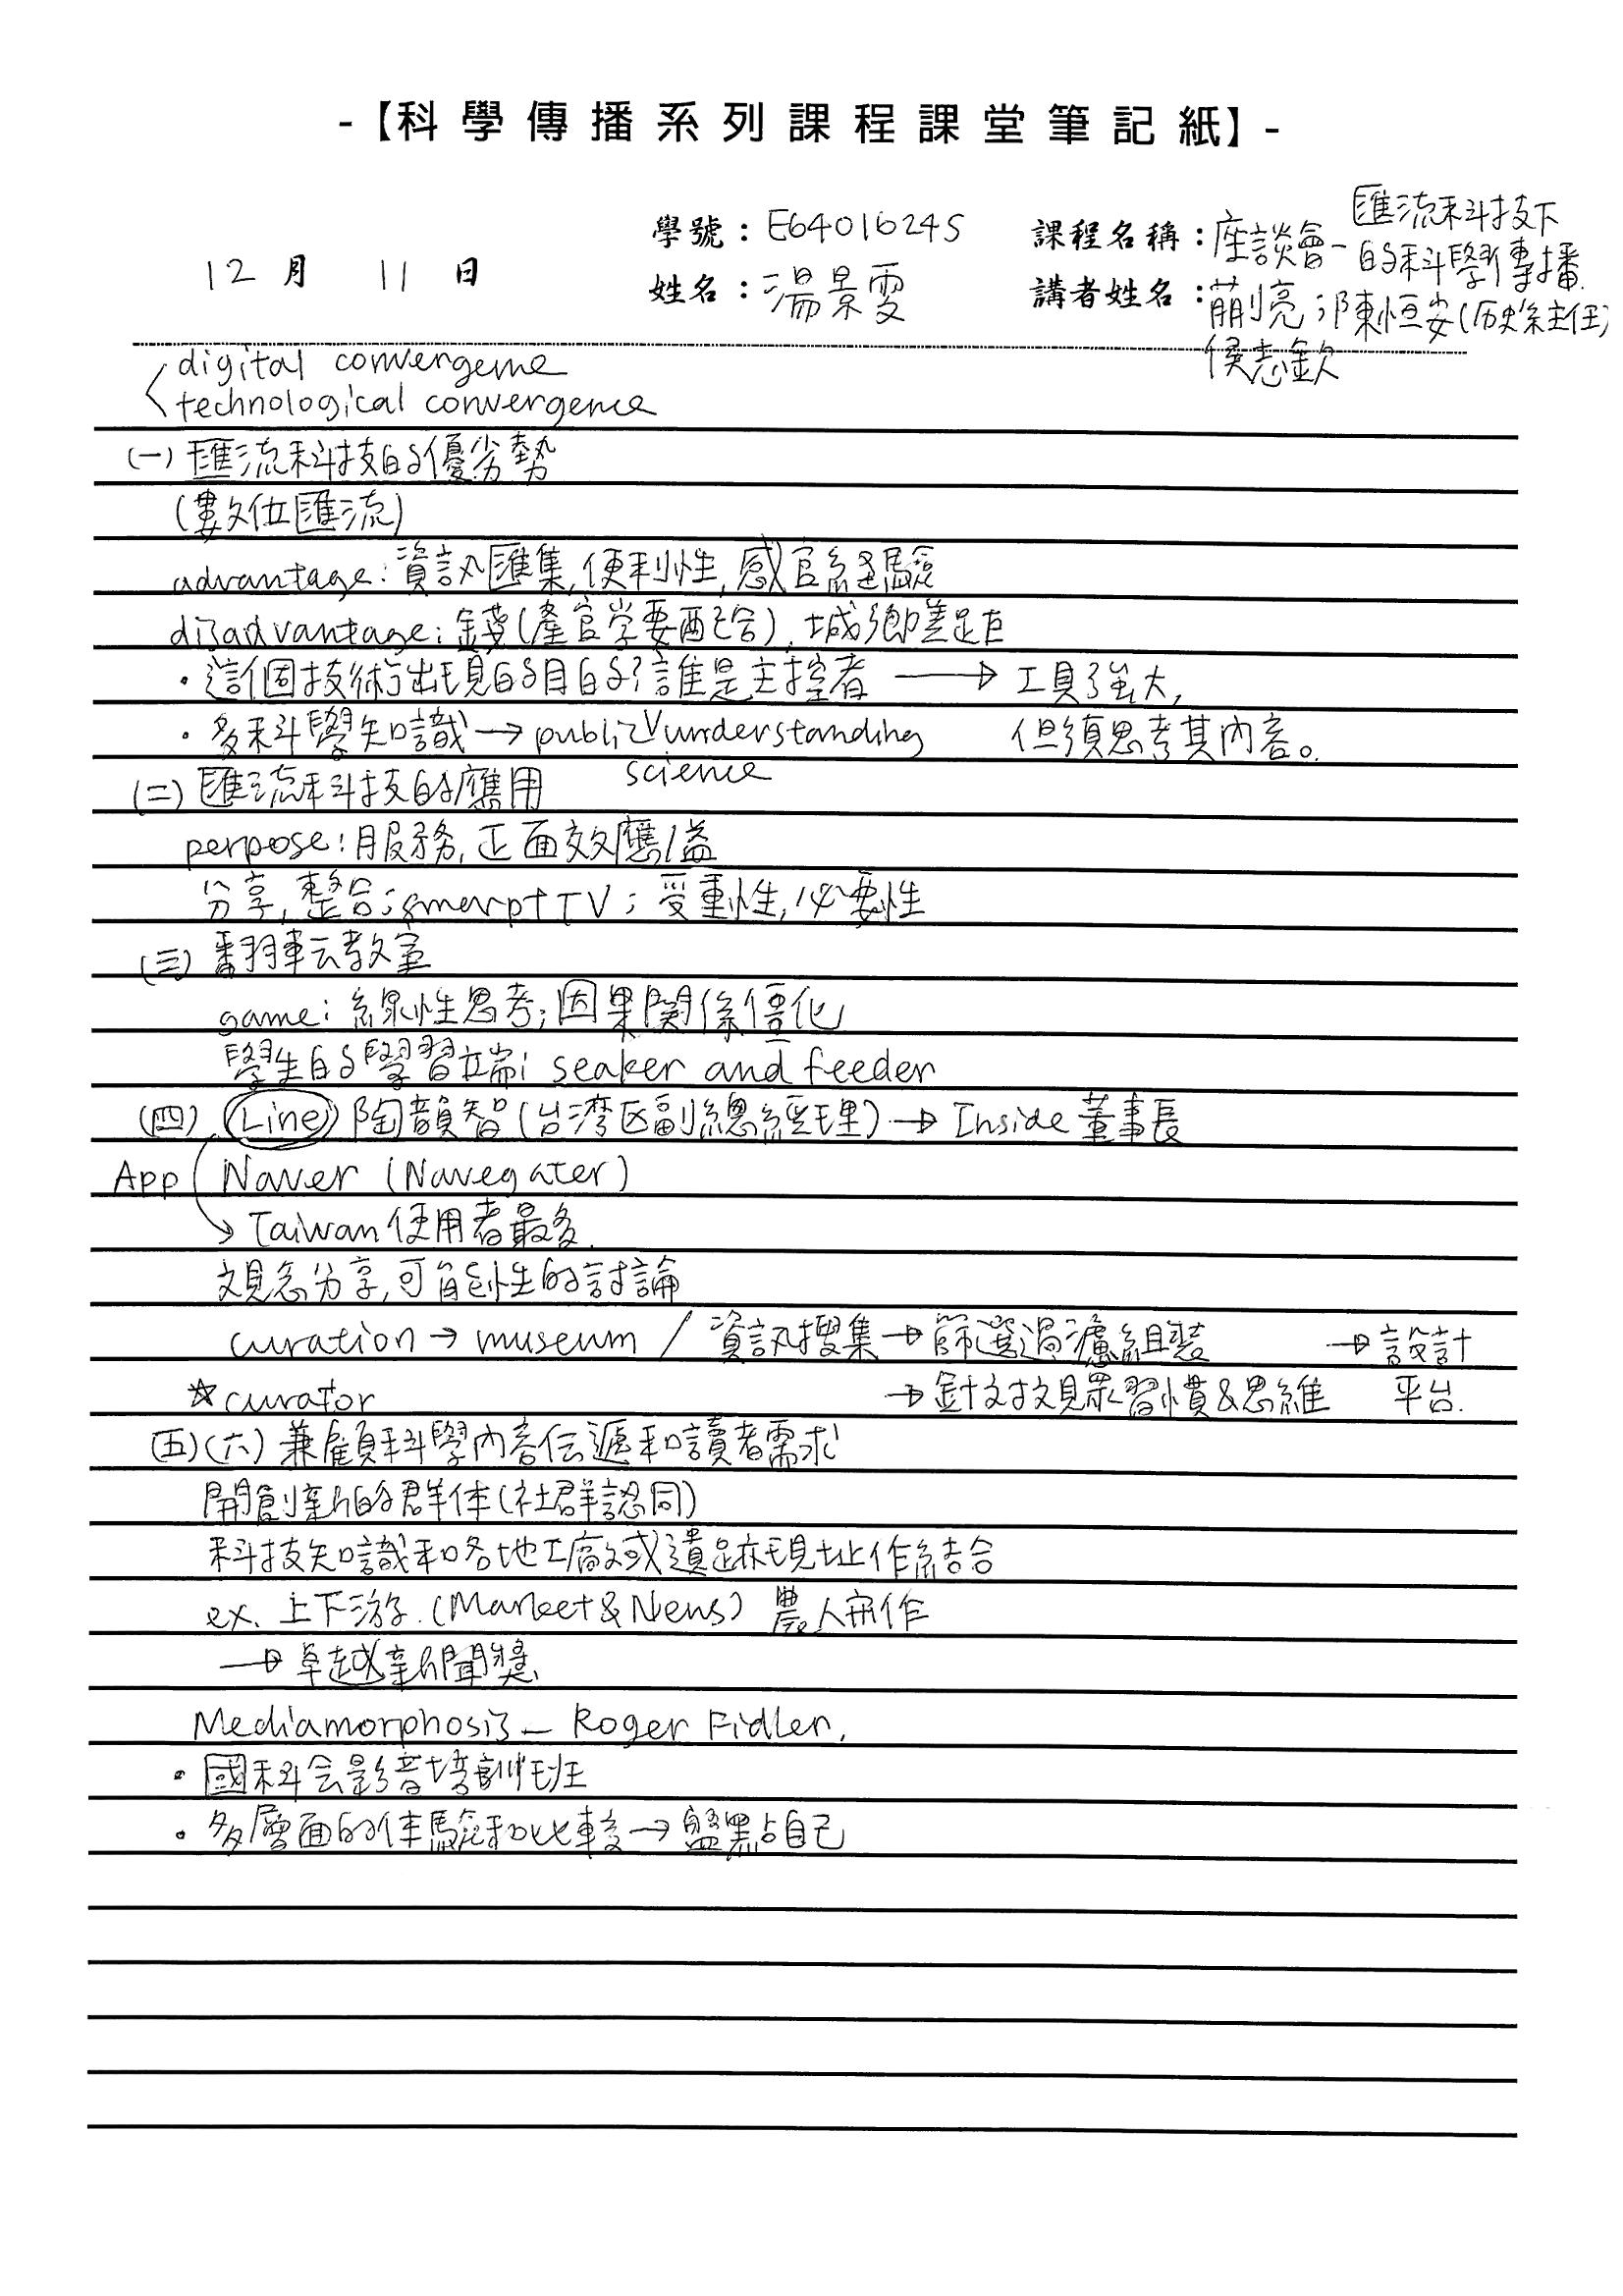 -【科學傳播系列課程課堂筆記紙】-
12 月 11 日
學號：E64016245
姓名：湯景雯
課程名稱：座談會-匯流科技下的科學傳播
講者姓名：蒯亮；陳恒安(历史系主任)
侯志欽
digital convergence
technological convergence
(一) 匯流科技的優劣勢
(數位匯流)
advantage: 資訊匯集,便利性,感官經驗
disadvantage: 錢(產官学要配合),城鄉差距
・這個技術出現的目的？誰是主控者 → 工具強大,
・多科學知識 → public understanding 但須思考其內容。
science
(二) 匯流科技的應用
perpose: 服務,正面效應/益
分享,整合; smarpt TV; 受重性,必要性
(三) 翻轉教室
game: 線性思考;因果関係僵化
學生的學習端; seaker and feeder
(四) Line 陶韻智(台湾区副總經理) → Inside董事長
App Naver (Navegater)
→ Taiwan使用者最多.
观念分享,可能性的討論
curation → museum / 資訊搜集 → 篩選過濾組裝 → 設計
☆curator → 針对观眾習慣&思維 平台.
(五)(六) 兼顧科學內容伝遞和讀者需求
開創新的群体(社群認同)
科技知識和各地工廠或遺跡現址作結合
ex. 上下游.(Market & News) 農人合作
→ 卓越新聞獎
Mediamorphosis — Roger Fidler.
・國科会影音培訓班
・多層面的体驗和比較 → 盤點自己